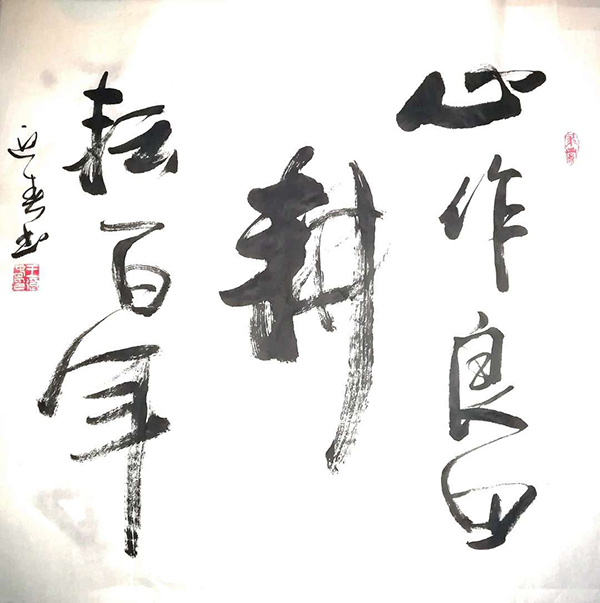 心作良田
耕
耘百年
迎春书